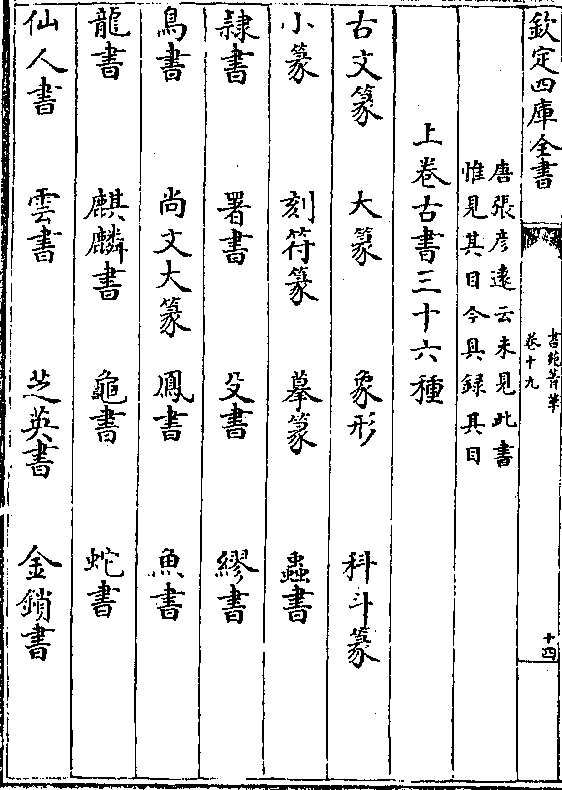 欽定四庫全書
書苑菁華
卷十九
十四
唐張彦遠云未見此書
惟見其目今具録其目
上卷古書三十六種
古文篆 大篆 象形 科斗篆
小篆 刻符篆 摹篆 蟲書
隸書 署書 殳書 繆書
鳥書 尚文大篆 鳳書 魚書
龍書 麒麟書 龜書 蛇書
仙人書 雲書 芝英書 金鎖書